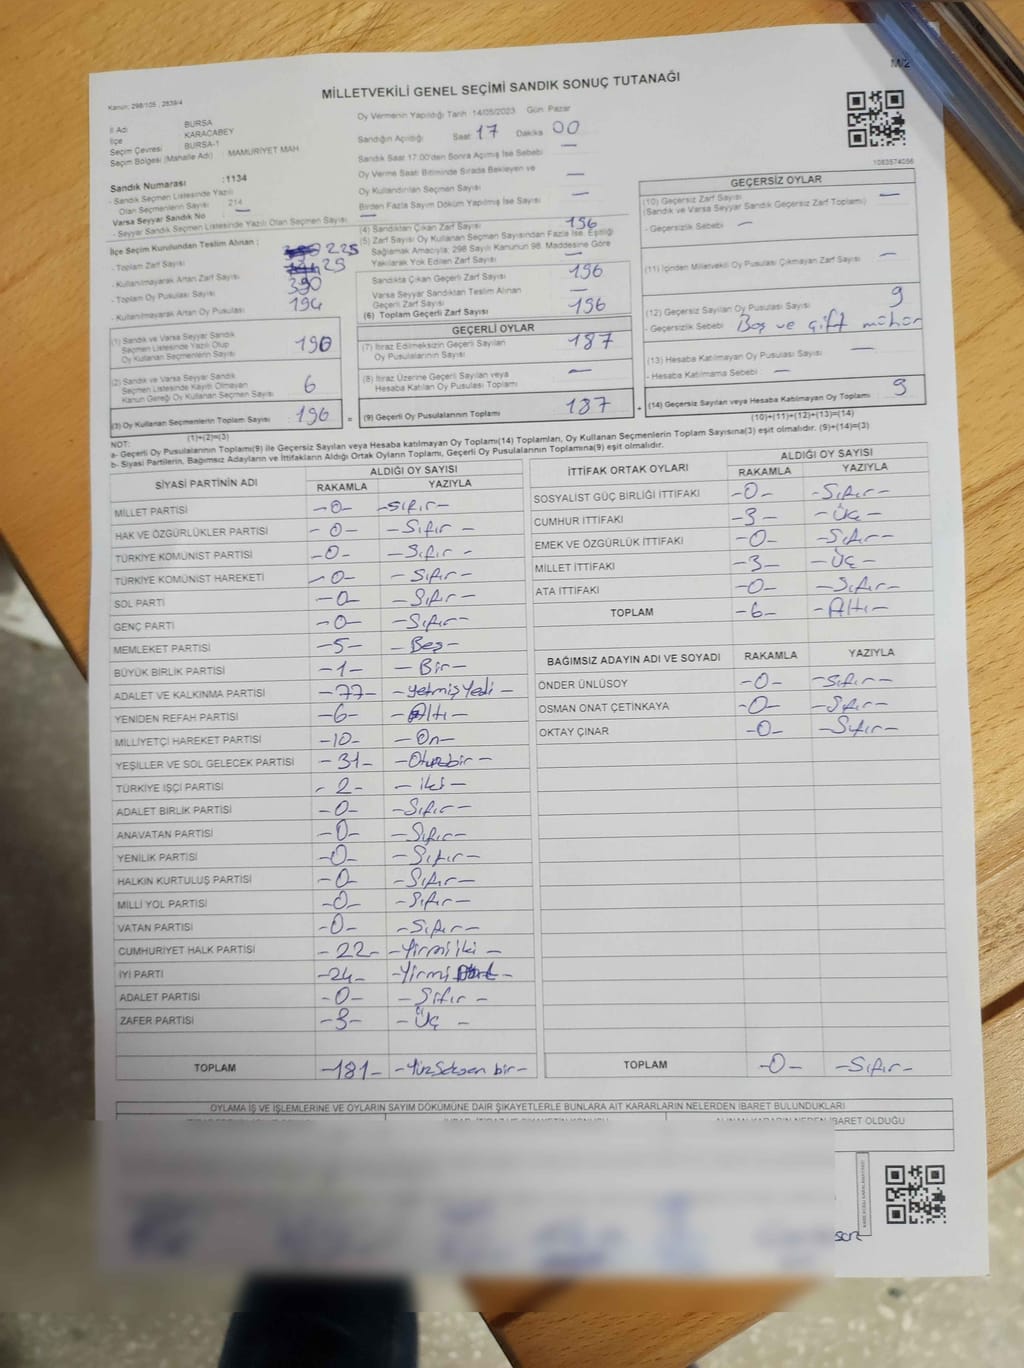 M/2
MİLLETVEKİLİ GENEL SEÇİMİ SANDIK SONUÇ TUTANAĞI
Kanun: 298/105 , 2839/4
İl Adı BURSA
İlçe KARACABEY
Seçim Çevresi BURSA-1
Seçim Bölgesi (Mahalle Adı) MAMURİYET MAH
Oy Vermenin Yapıldığı Tarih 14/05/2023 Gün Pazar
Sandığın Açıldığı Saat 17 Dakika 00
Sandık Saat 17.00'den Sonra Açılmış İse Sebebi —
Oy Verme Saati Bitiminde Sırada Bekleyen ve
Oy Kullandırılan Seçmen Sayısı —
Birden Fazla Sayım Döküm Yapılmış İse Sayısı —
Sandık Numarası :1134
- Sandık Seçmen Listesinde Yazılı
Olan Seçmenlerin Sayısı 214
Varsa Seyyar Sandık No —
- Seyyar Sandık Seçmen Listesinde Yazılı Olan Seçmen Sayısı —
İlçe Seçim Kurulundan Teslim Alınan :
- Toplam Zarf Sayısı 225
- Kullanılmayarak Artan Zarf Sayısı 29
- Toplam Oy Pusulası Sayısı 390
- Kullanılmayarak Artan Oy Pusulası 194
(1) Sandık ve Varsa Seyyar Sandık
Seçmen Listesinde Yazılı Olup
Oy Kullanan Seçmenlerin Sayısı 190
(2) Sandık ve Varsa Seyyar Sandık
Seçmen Listesinde Kayıtlı Olmayan
Kanun Gereği Oy Kullanan Seçmen Sayısı 6
(3) Oy Kullanan Seçmenlerin Toplam Sayısı 196 =
(1)+(2)=(3)
(4) Sandıktan Çıkan Zarf Sayısı 196
(5) Zarf Sayısı Oy Kullanan Seçmen Sayısından Fazla İse, Eşitliği
Sağlamak Amacıyla, 298 Sayılı Kanunun 98. Maddesine Göre
Yakılarak Yok Edilen Zarf Sayısı —
Sandıkta Çıkan Geçerli Zarf Sayısı 196
Varsa Seyyar Sandıktan Teslim Alınan
Geçerli Zarf Sayısı —
(6) Toplam Geçerli Zarf Sayısı 196
GEÇERLİ OYLAR
(7) İtiraz Edilmeksizin Geçerli Sayılan
Oy Pusulalarının Sayısı 187
(8) İtiraz Üzerine Geçerli Sayılan veya
Hesaba Katılan Oy Pusulası Toplamı —
(9) Geçerli Oy Pusulalarının Toplamı 187 +
1083574056
GEÇERSİZ OYLAR
(10) Geçersiz Zarf Sayısı —
(Sandık ve Varsa Seyyar Sandık Geçersiz Zarf Toplamı)
- Geçersizlik Sebebi —
(11) İçinden Milletvekili Oy Pusulası Çıkmayan Zarf Sayısı —
(12) Geçersiz Sayılan Oy Pusulası Sayısı 9
- Geçersizlik Sebebi Boş ve çift mühür
(13) Hesaba Katılmayan Oy Pusulası Sayısı —
- Hesaba Katılmama Sebebi —
(14) Geçersiz Sayılan veya Hesaba Katılmayan Oy Toplamı 9
(10)+(11)+(12)+(13)=(14)
NOT:
a- Geçerli Oy Pusulalarının Toplamı(9) ile Geçersiz Sayılan veya Hesaba katılmayan Oy Toplamı(14) Toplamları, Oy Kullanan Seçmenlerin Toplam Sayısına(3) eşit olmalıdır. (9)+(14)=(3)
b- Siyasi Partilerin, Bağımsız Adayların ve İttifakların Aldığı Ortak Oyların Toplamı, Geçerli Oy Pusulalarının Toplamına(9) eşit olmalıdır.
SİYASİ PARTİNİN ADI ALDIĞI OY SAYISI
RAKAMLA YAZIYLA
MİLLET PARTİSİ -0- -Sıfır-
HAK VE ÖZGÜRLÜKLER PARTİSİ -0- -Sıfır-
TÜRKİYE KOMÜNİST PARTİSİ -0- -Sıfır-
TÜRKİYE KOMÜNİST HAREKETİ -0- -Sıfır-
SOL PARTİ -0- -Sıfır-
GENÇ PARTİ -0- -Sıfır-
MEMLEKET PARTİSİ -5- -Beş-
BÜYÜK BİRLİK PARTİSİ -1- -Bir-
ADALET VE KALKINMA PARTİSİ -77- -yetmişYedi-
YENİDEN REFAH PARTİSİ -6- -Altı-
MİLLİYETÇİ HAREKET PARTİSİ -10- -On-
YEŞİLLER VE SOL GELECEK PARTİSİ -31- -Otuzbir-
TÜRKİYE İŞÇİ PARTİSİ -2- -iki-
ADALET BİRLİK PARTİSİ -0- -Sıfır-
ANAVATAN PARTİSİ -0- -Sıfır-
YENİLİK PARTİSİ -0- -Sıfır-
HALKIN KURTULUŞ PARTİSİ -0- -Sıfır-
MİLLİ YOL PARTİSİ -0- -Sıfır-
VATAN PARTİSİ -0- -Sıfır-
CUMHURİYET HALK PARTİSİ -22- -Yirmi iki-
İYİ PARTİ -24- -Yirmi Dört-
ADALET PARTİSİ -0- -Sıfır-
ZAFER PARTİSİ -3- -Üç-
TOPLAM -181- -YüzSeksen bir-
İTTİFAK ORTAK OYLARI ALDIĞI OY SAYISI
RAKAMLA YAZIYLA
SOSYALİST GÜÇ BİRLİĞİ İTTİFAKI -0- -Sıfır-
CUMHUR İTTİFAKI -3- -Üç-
EMEK VE ÖZGÜRLÜK İTTİFAKI -0- -Sıfır-
MİLLET İTTİFAKI -3- -Üç-
ATA İTTİFAKI -0- -Sıfır-
TOPLAM -6- -Altı-
BAĞIMSIZ ADAYIN ADI VE SOYADI RAKAMLA YAZIYLA
ÖNDER ÜNLÜSOY -0- -Sıfır-
OSMAN ONAT ÇETİNKAYA -0- -Sıfır-
OKTAY ÇINAR -0- -Sıfır-
TOPLAM -0- -Sıfır-
OYLAMA İŞ VE İŞLEMLERİNE VE OYLARIN SAYIM DÖKÜMÜNE DAİR ŞİKAYETLERLE BUNLARA AİT KARARLARIN NELERDEN İBARET BULUNDUKLARI
ALINAN KARARIN NEDEN İBARET OLDUĞU